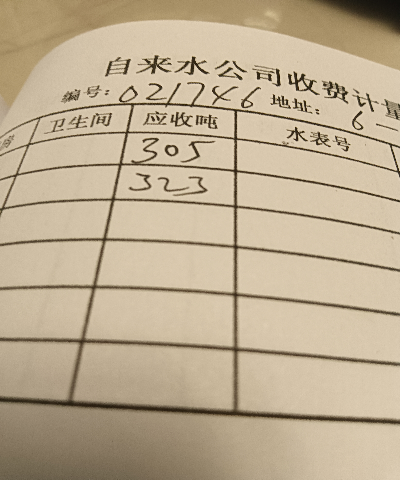 自来水公司收费计量
编号: 021746 地址: 6-
卫生间 应收吨 水表号
305
323